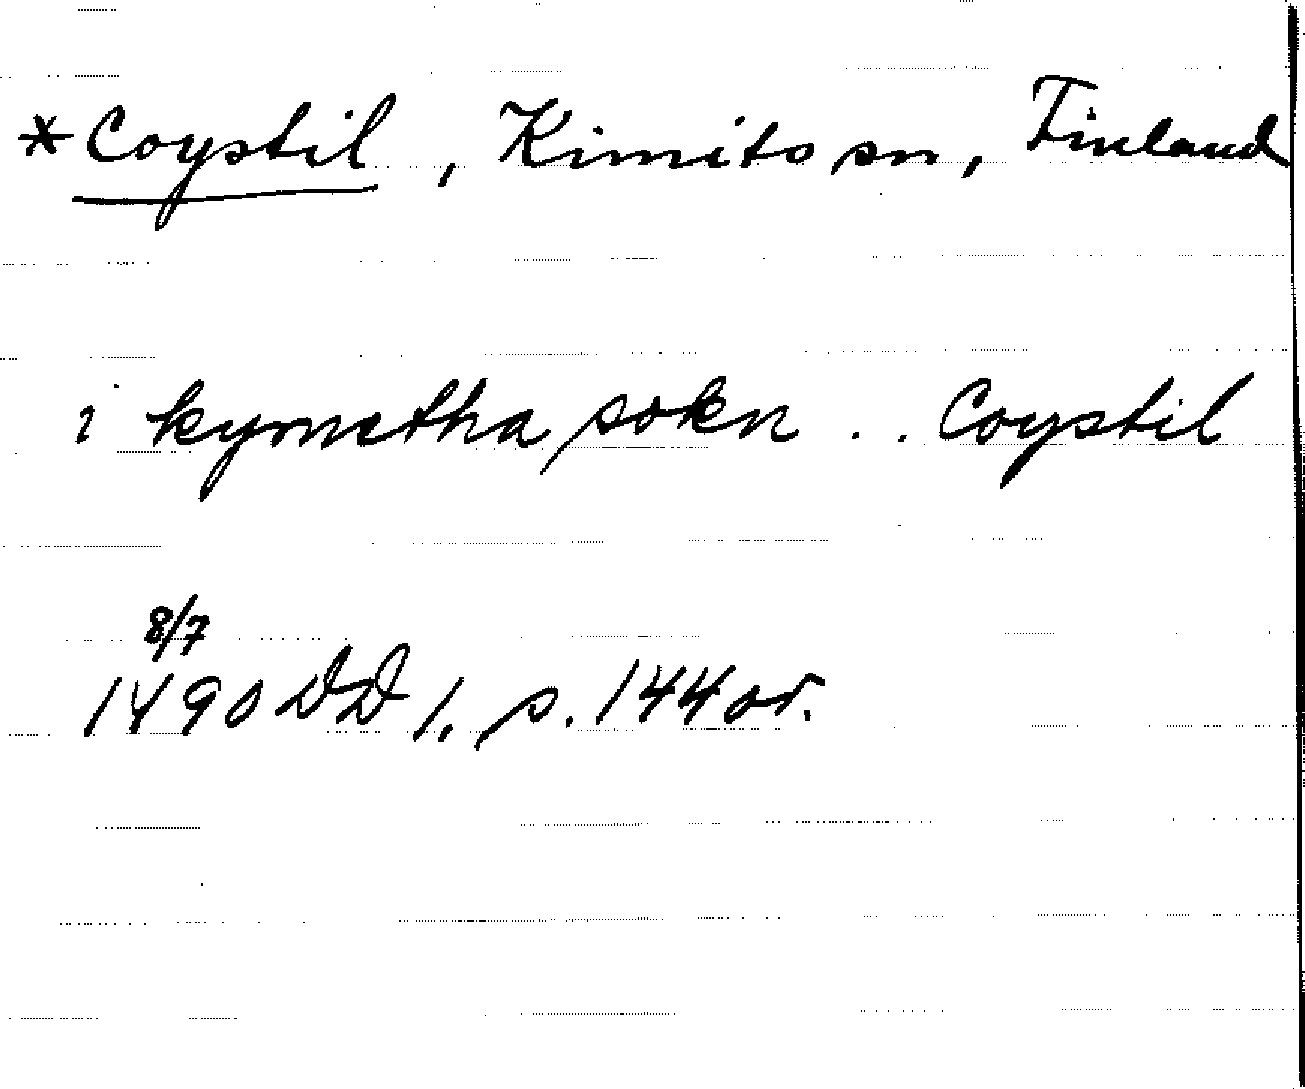 *Coystil, Kimito sn, Finland
i kymetha sokn .. Coystil
8/7
1490 DD 1, s. 144 or.